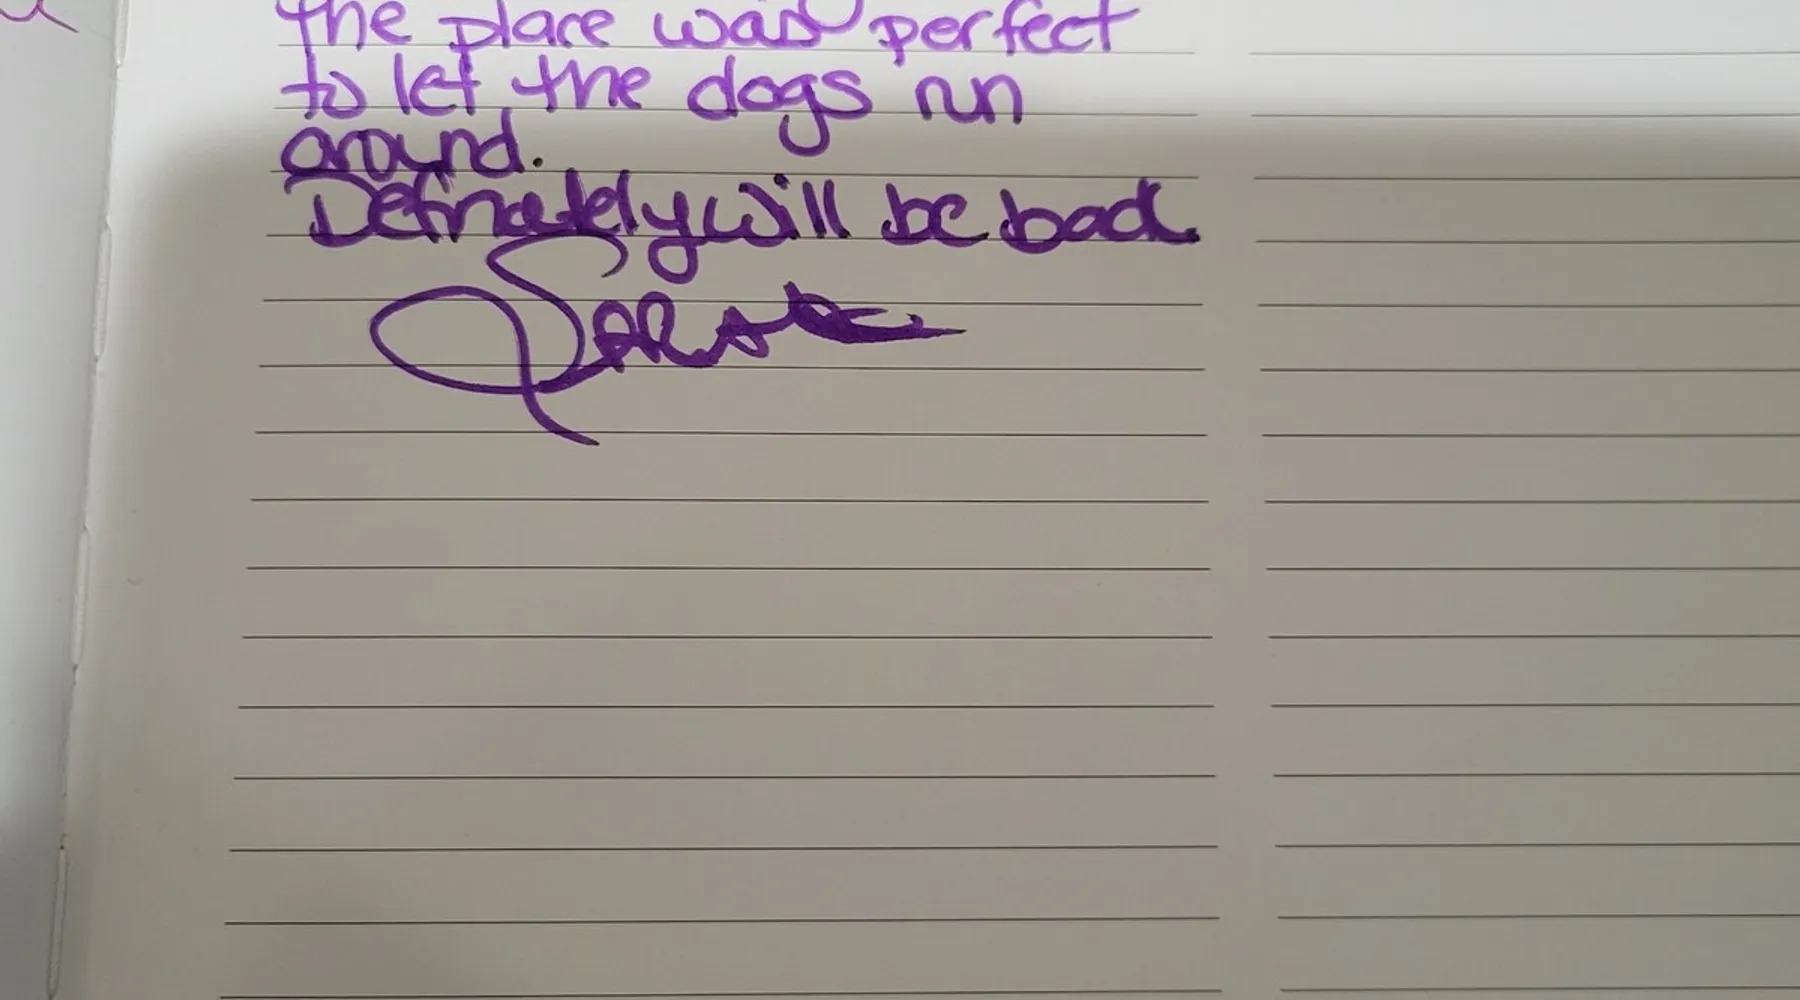 the place was perfect
to let the dogs run
around.
Definately will be back